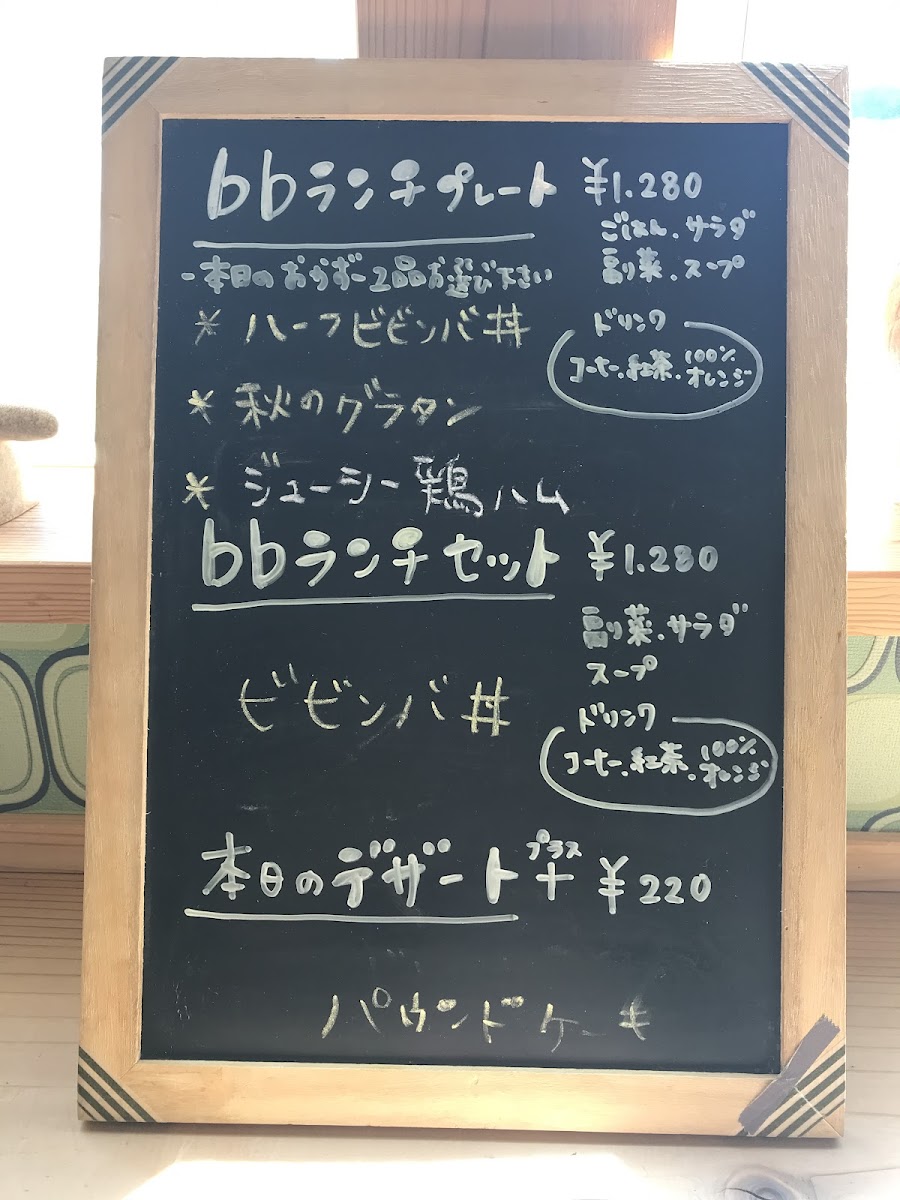 bbランチプレート ¥1.280
ごはん.サラダ
副菜.スープ
-本日のおかずー2品お選び下さい
* ハーフビビンバ丼
ドリンク
コーヒー.紅茶.100%オレンジ
* 秋のグラタン
* ジューシー鶏ハム
bbランチセット ¥1.280
副菜.サラダ
スープ
ビビンバ丼
ドリンク
コーヒー.紅茶.100%オレンジ
本日のデザート+プラス ¥220
パウンドケーキ